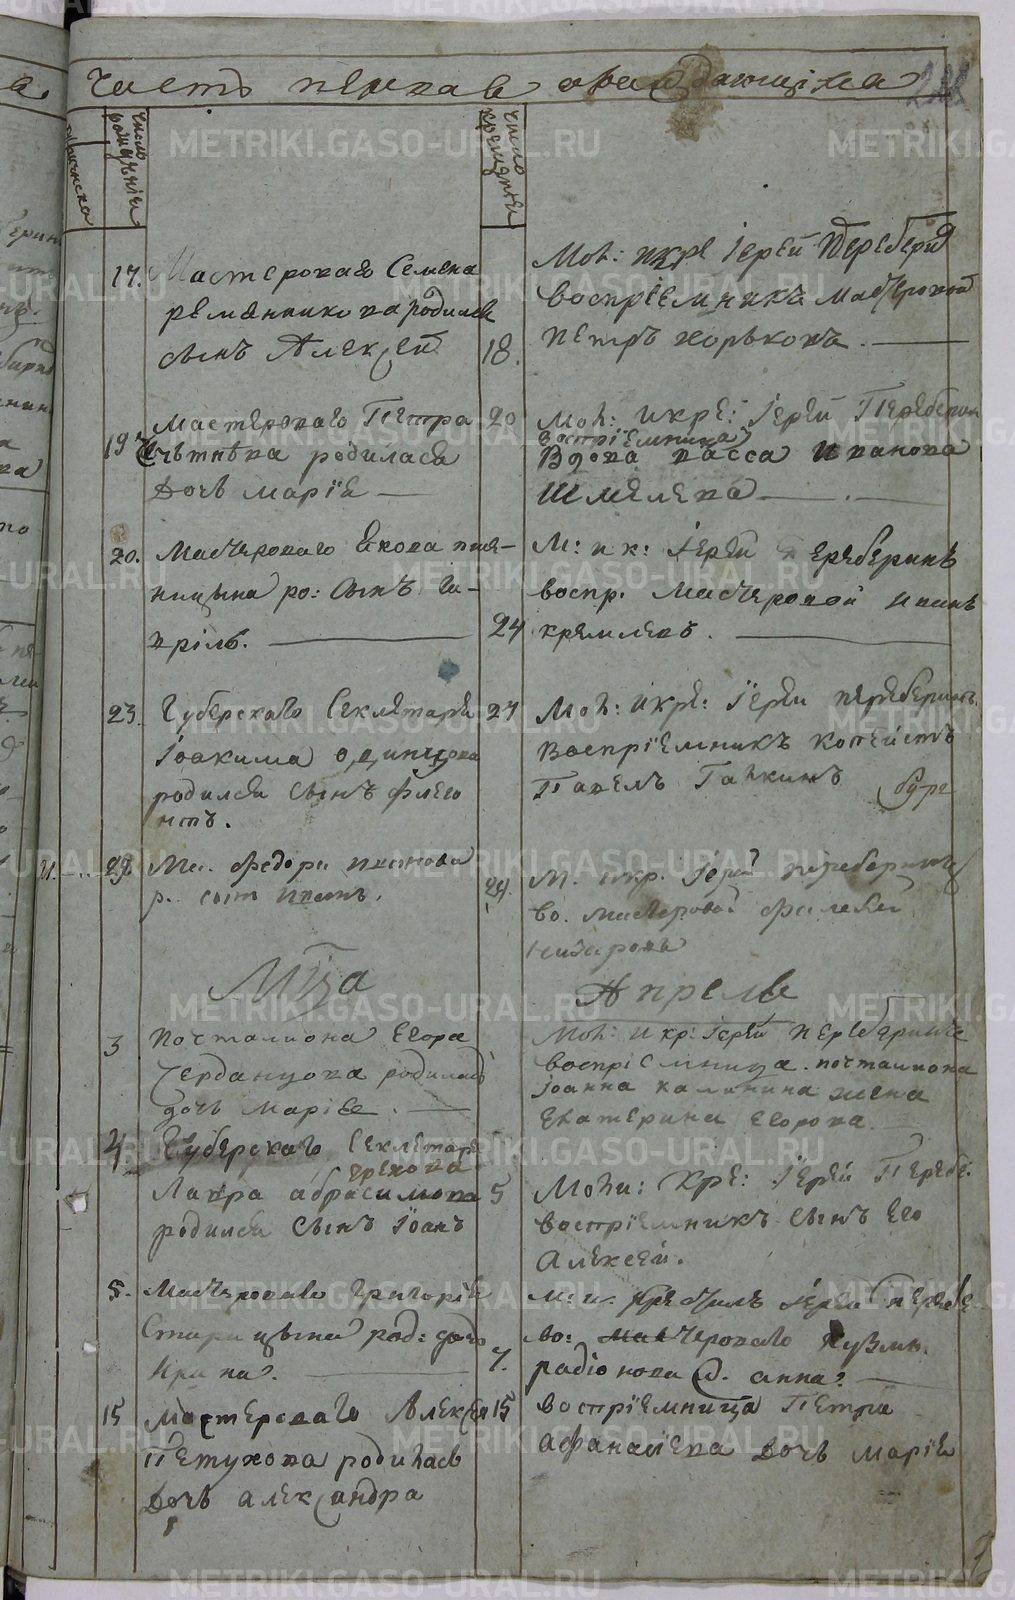 часть первая о раждающихся
число рождѣнія
число крещенія
17. Мастероваго Семена
Ременникова родился
сынъ Алексей
Мол: и кре Іерей Переберин
18. воспріемникъ мастеровой
Петръ Хорьковъ.
19 мастероваго Петра
родилася
дочь Марїя
20 мол: и кре: Іерей Переберин
воспріемница
Вдова Васса Иванова
Шмелева
20. мастероваго Якова
ницына ро: сынъ Га-
вріилъ.
М: и к: Іерей Переберинъ
воспр. мастеровой Иванъ
24 Кремлевъ.
23. Губерскаго Секлетаря
Іоакима Одинцова
родился сынъ Флего
нтъ.
27 Мол: и кре: Іерей Переберинъ
воспріемникъ копеистъ
Павелъ Галкинъ
29. Ма. Федора Иванова
р. сын Иванъ.
29. М. и кр. Іерей Переберинъ
во. мастеровой
Назаровъ
Мца Апреля
3 Почталиона Егора
Чердынцова родилась
дочь Марїя.
Мол: и кр: Іерей Переберинъ
воспріемница почталиона
Іоанна Калинина жена
Екатерина Егорова.
4 Губерскаго Секлетаря
Грехова
Лавра Абрасимова
родился сынъ Іоанъ
5 Моли: Кре: Іерей Перебе.
воспріемникъ сынъ Его
Алексей.
5. Мастероваго Григорія
Старицына род: дочь
Ирина.
м: и: крестилъ Іерей Перебе
во: мастероваго Кузмы
7. Радіонова д. Анна.
15 Мастероваго Алексея
Петухова родилась
дочь Александра
15 воспріемница Петра
Афанасіева дочь Марїя